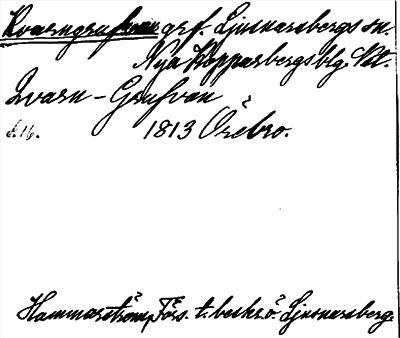 Kvarngrufvan grf. Ljusnarsbergs sn.
Nya Kopparbergs blg. Vstm.
Qvarn-Grufvan
s. 16. 1813 Örebro.
Hammarström, Förs. t. beskr. ö. Ljusnarsberg.